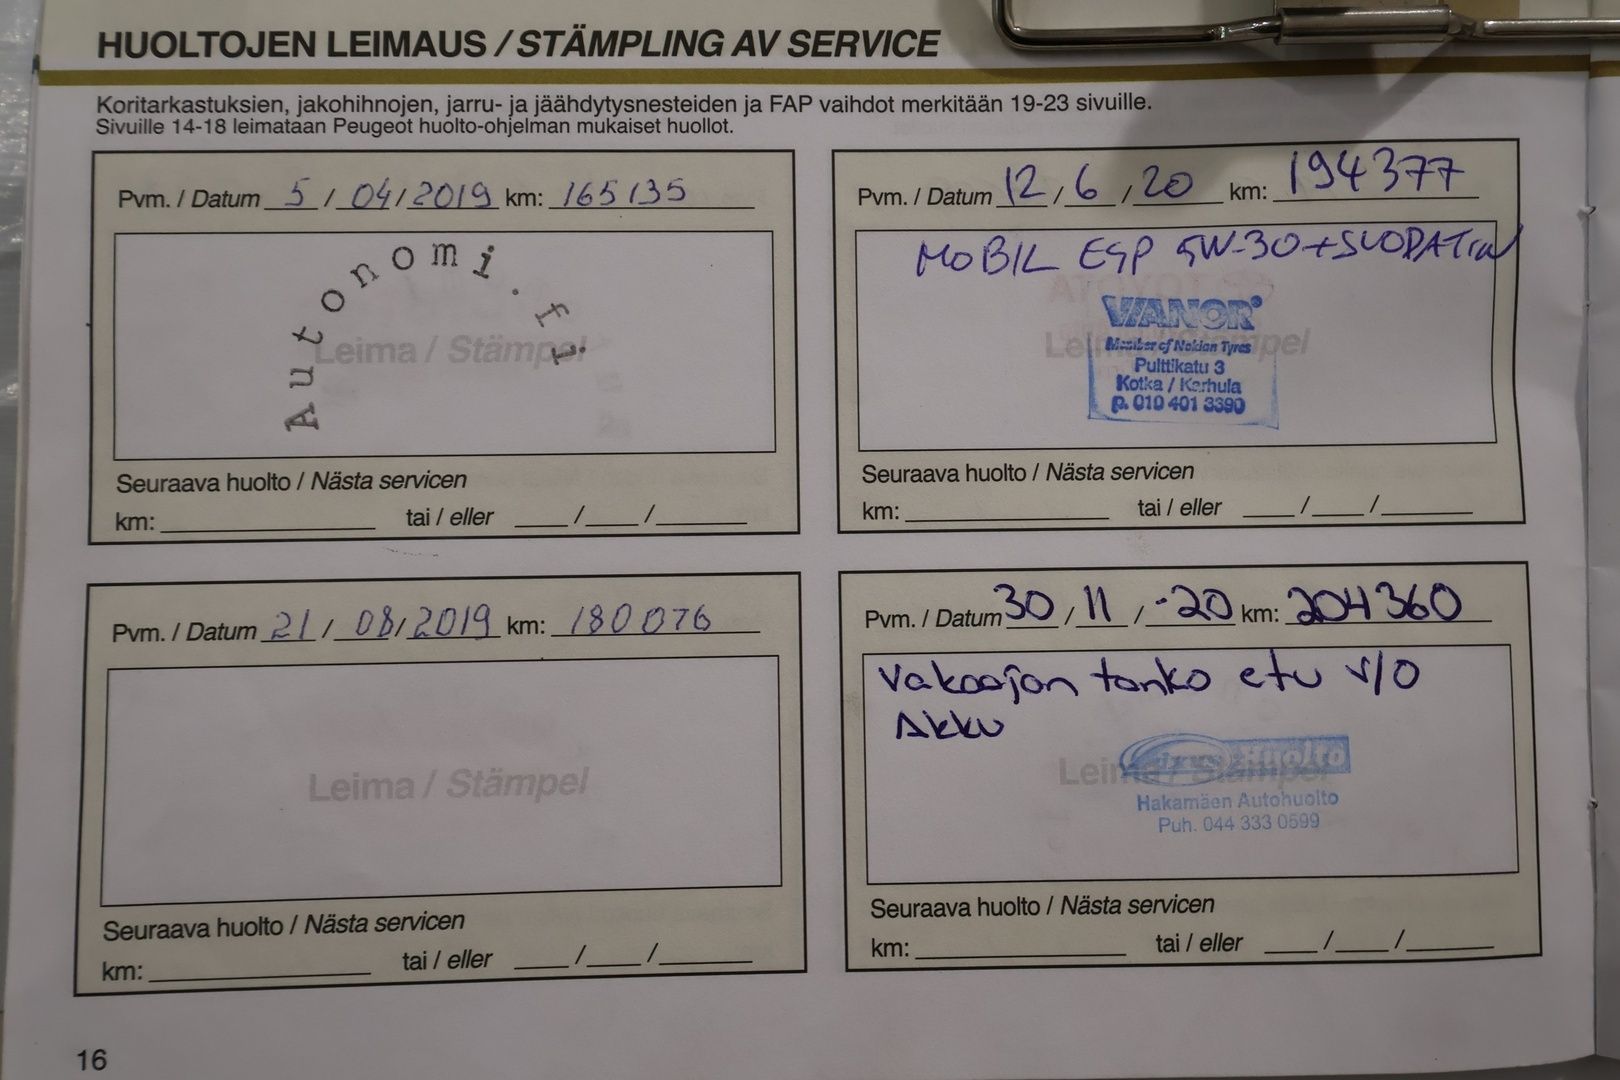 HUOLTOJEN LEIMAUS / STÄMPLING AV SERVICE
Koritarkastuksien, jakohihnojen, jarru- ja jäähdytysnesteiden ja FAP vaihdot merkitään 19-23 sivuille.
Sivuille 14-18 leimataan Peugeot huolto-ohjelman mukaiset huollot.
Pvm. / Datum 5 / 04 / 2019 km: 165135
Autonomi.fi
Leima / Stämpel
Seuraava huolto / Nästa servicen
km: tai / eller / /
Pvm. / Datum 12 / 6 / 20 km: 194377
MOBIL ESP 5W-30 +
Leima / Stämpel
VIANOR
Member of Nokian Tyres
Pulttikatu 3
Kotka / Karhula
p. 010 401 3390
Seuraava huolto / Nästa servicen
km: tai / eller / /
Pvm. / Datum 21 / 08 / 2019 km: 180076
Leima / Stämpel
Seuraava huolto / Nästa servicen
km: tai / eller / /
Pvm. / Datum 30 / 11 / -20 km: 204360
Vakaajan tanko etu v/o
Akku
Leima / Stämpel
Huolto
Hakamäen Autohuolto
Puh. 044 333 0599
Seuraava huolto / Nästa servicen
km: tai / eller / /
16